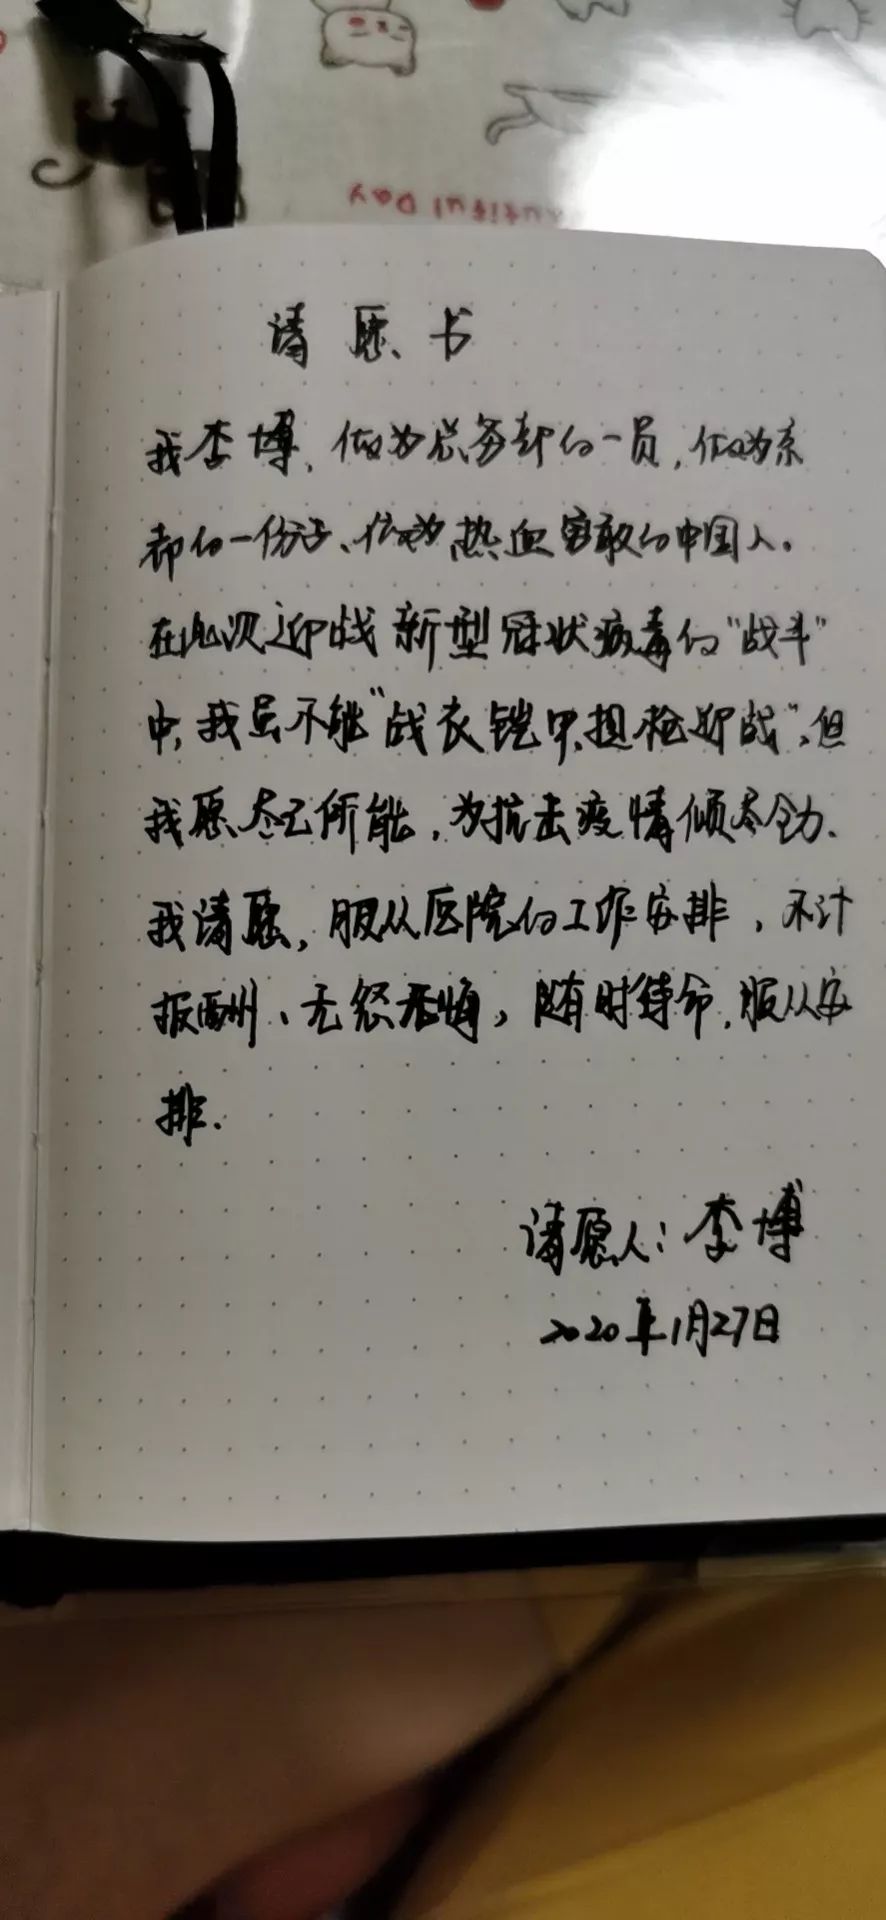 Beautiful Day
请愿书
我李博，做为总务部的一员，做为东
部的一份子、做为热血勇敢的中国人。
在此次迎战新型冠状病毒的“战斗”
中，我虽不能“战衣铠甲、提枪迎战”，但
我愿尽己所能，为抗击疫情倾尽全力．
我请愿，服从医院的工作安排，不计
报酬、无怒无悔，随时待命，服从安
排．
请愿人：李博
2020年1月27日